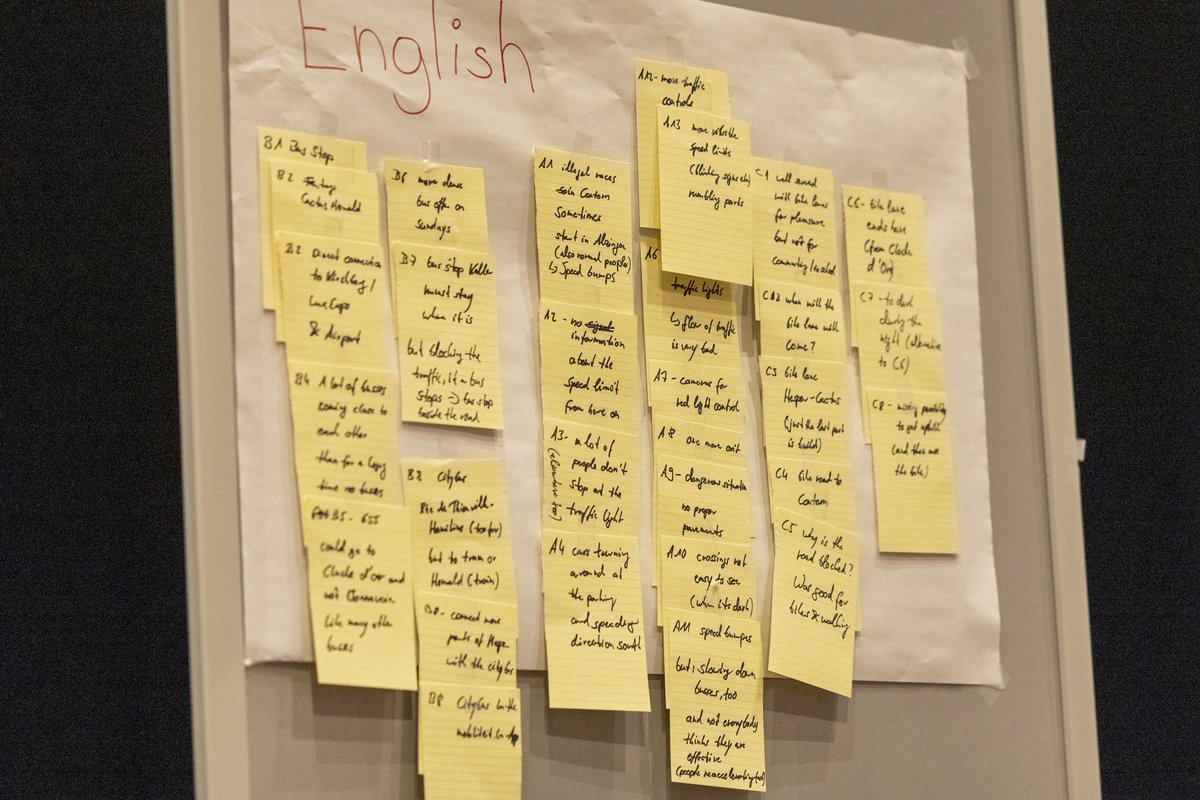 English
B1 Bus Stop
B2
Cactus Howald
B2 Direct connection
to Kirchberg /
LuxExpo
& Airport
B4 A lot of busses
coming close to
each other
then for a long
time no busses
B5 - 655
could go to
Cloche d'or and
not Bonnevoie
like many other
busses
B6 more dense
bus offer on
sundays
B7 bus stop
must stay
where it is
but blocking the
traffic, if a bus
stops -> bus stop
beside the road
B8 Citybus
de Thionville -
Hamilius (too far)
but to tram or
Howald (train)
B8 - connect more
parts of
with the citybus
B8 Citybus in the
A1 illegal races
Contern
sometimes
start in Alzingen
(also normal people)
↳ Speed bumps
A2 - no signal
information
about the
speed limit
from here on
A3 - a lot of
people don't
stop at the
traffic light
(elsewhere too)
A4 cars turning
around at
the parking
and speeding
direction south
A12 - more traffic
controls
A13 more visible
speed limits
(blinking signs etc)
rumbling parts
A6
traffic lights
↳ flow of traffic
is very bad
A7 - cameras for
red light control
A8 one more exit
A9 - dangerous situation
no proper
pavements
A10 crossings not
easy to see
(when its dark)
A11 speed bumpes
but: slowing down
busses, too
and not everybody
thinks they are
effective
(people reaccelerating)
C1 well served
with bike lanes
for pleasure
but not for
commuting / school
C12 when will the
bike lane with
come?
C3 bike lane
Hesper - Cactus
(just the last part
is build)
C4 bike road to
Contern
C5 why is the
road blocked?
Was good for
bikes & walking
C6 - bike lane
ends here
(from Cloche
d'Or)
C7 - to dark
during the
night (alternative
to C6)
C8 - missing possibility
to get uphill
(and then use
the bike)